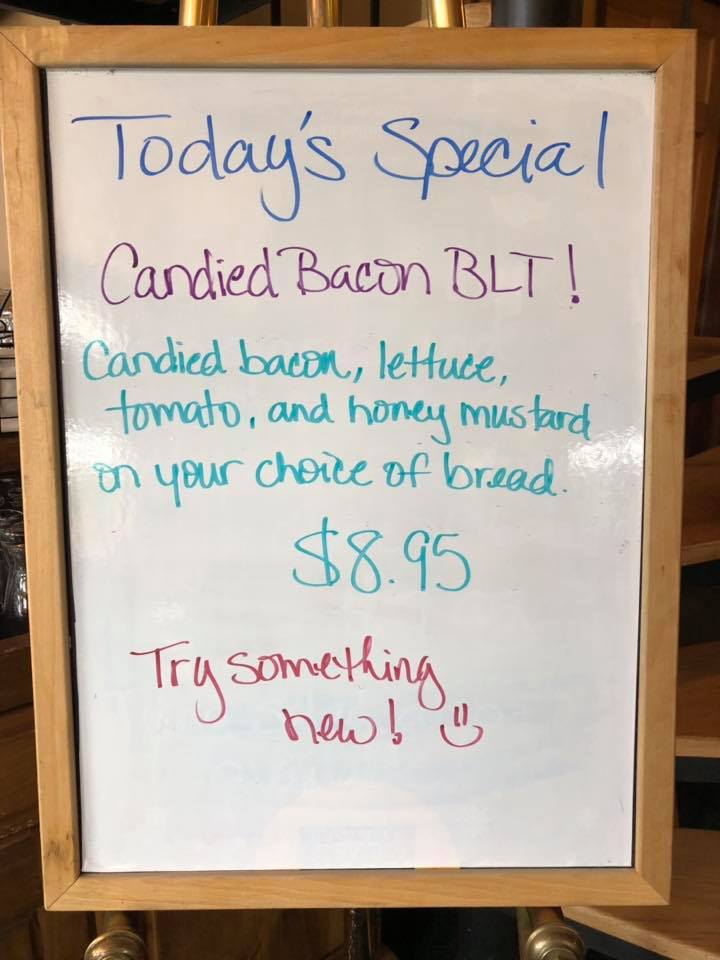 Today's Special
Candied Bacon BLT!
Candied bacon, lettuce,
tomato, and honey mustard
on your choice of bread.
$8.95
Try something
new! :)